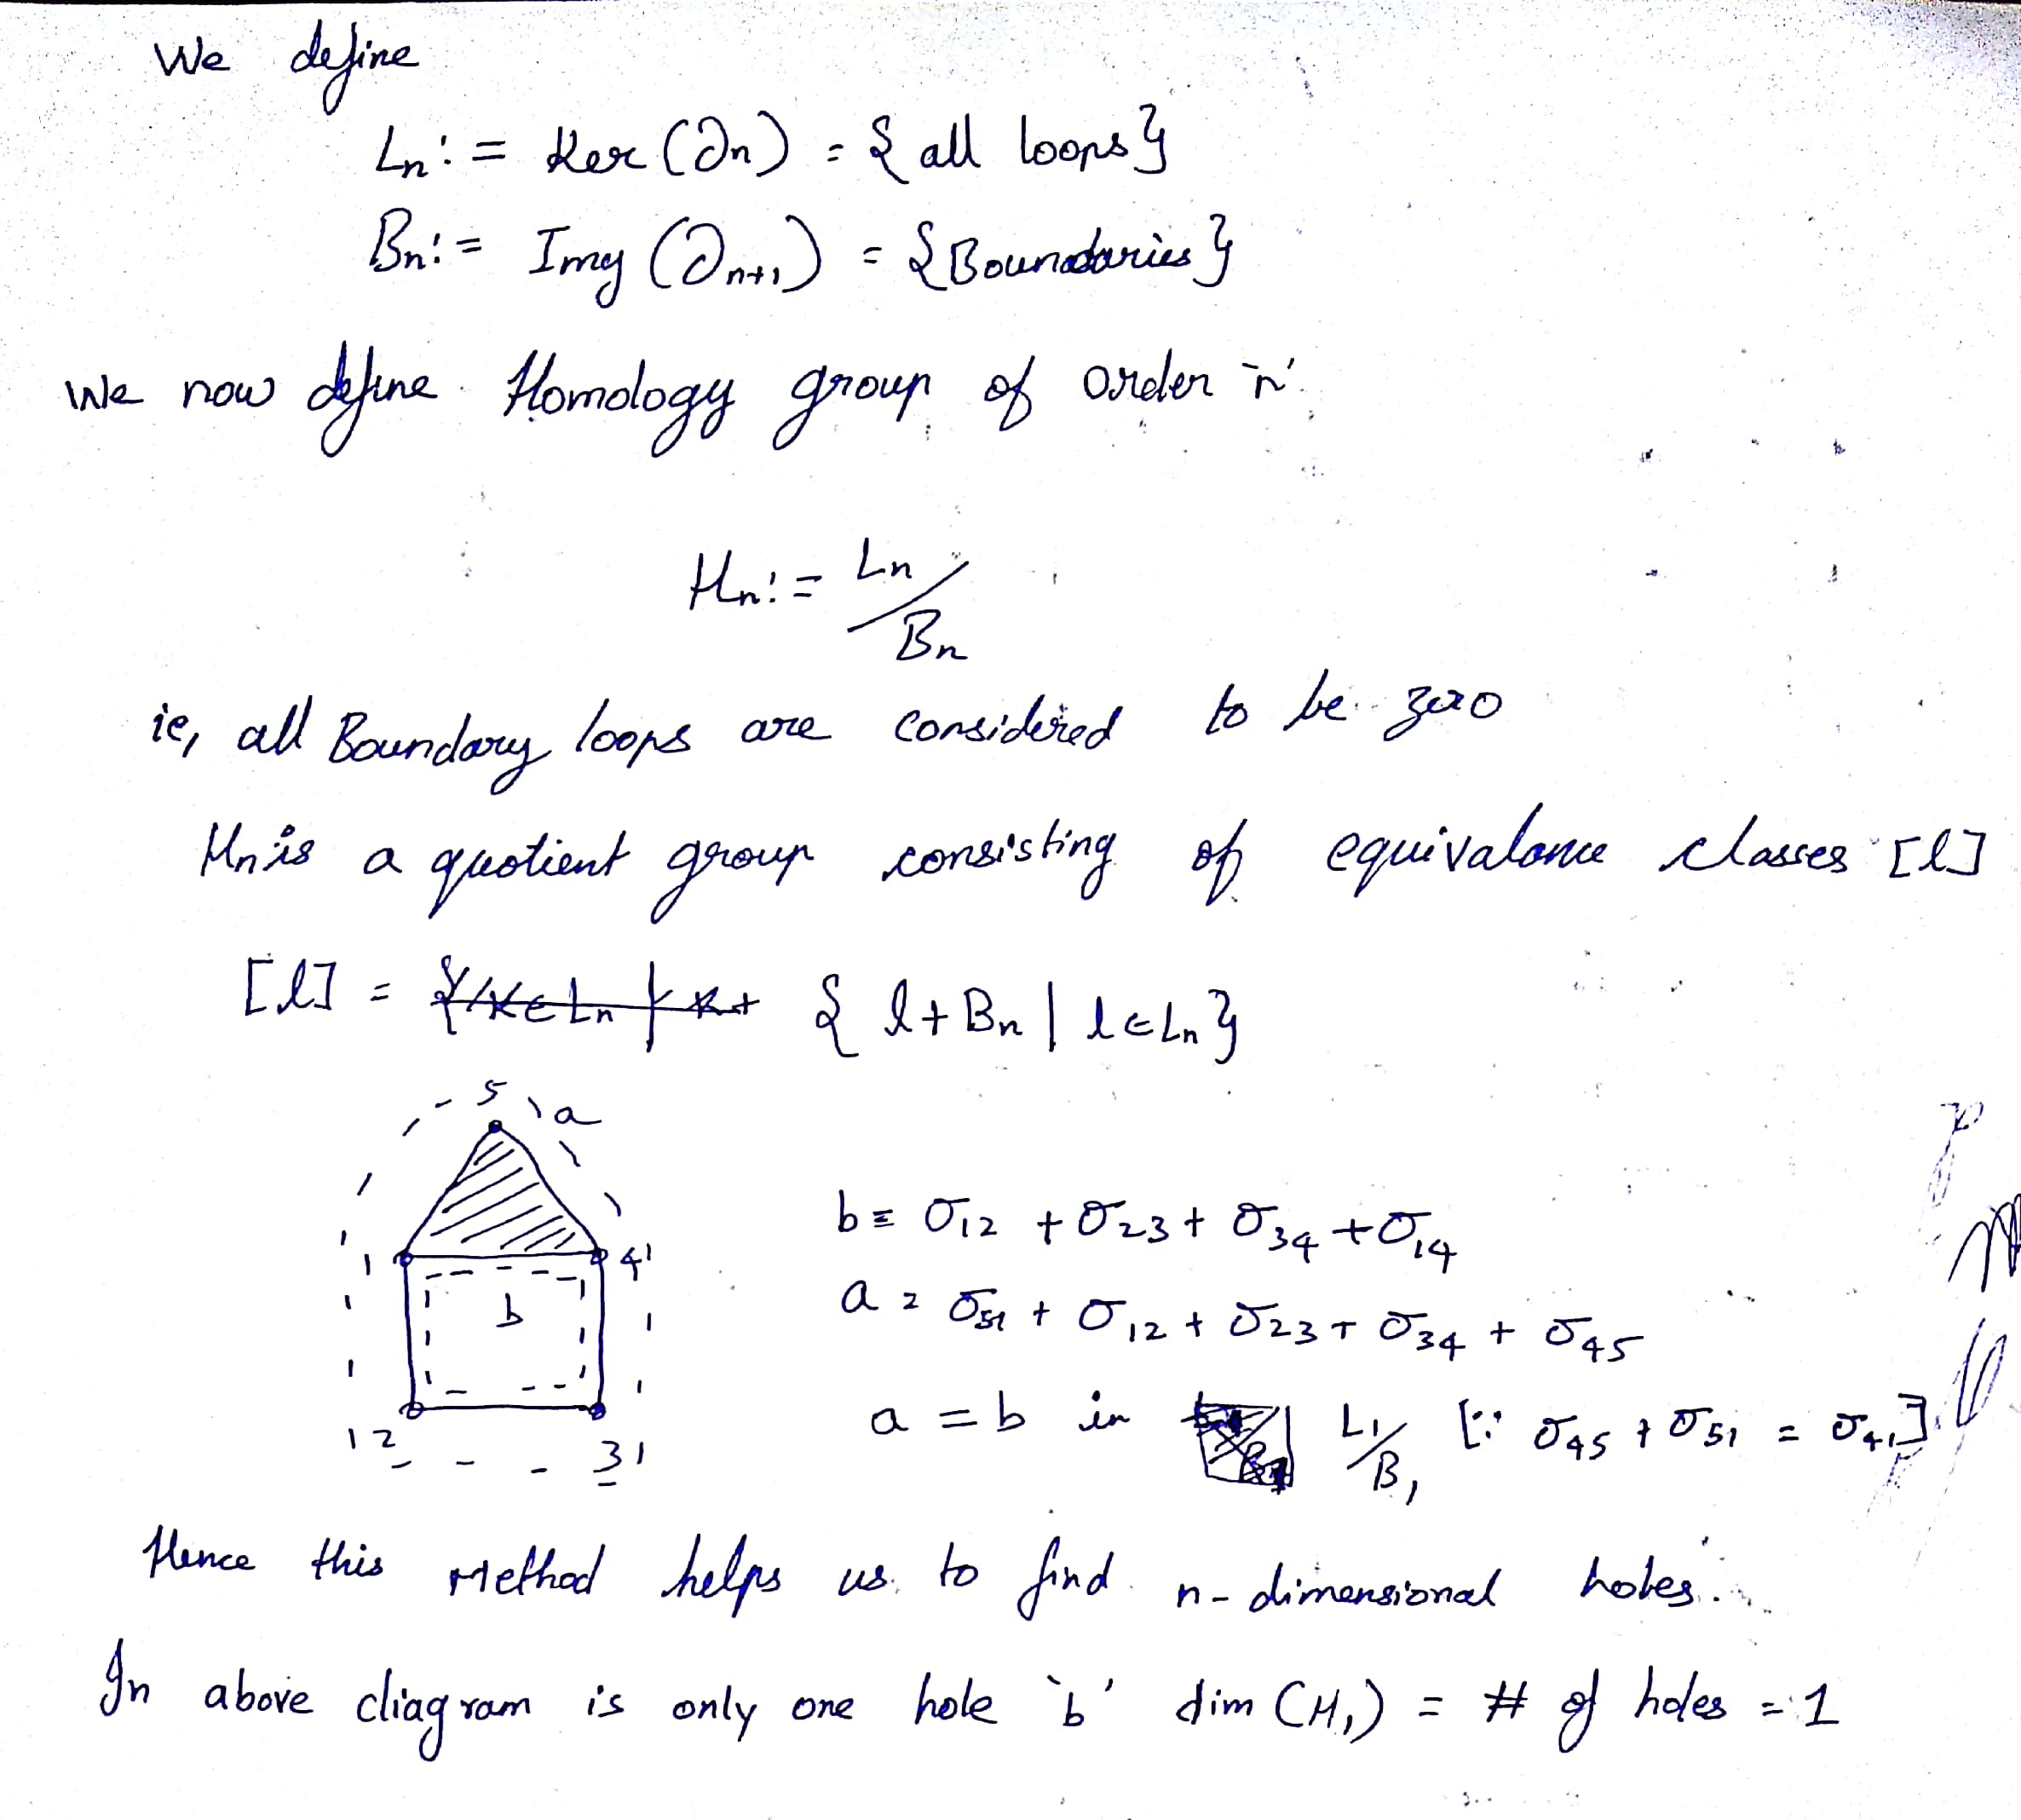 We define
Ln := Ker (∂n) = { all loops }
Bn := Img (∂n+1) = { Boundaries }
We now define Homology group of order 'n'
Hn := Ln / Bn
ie, all Boundary loops are considered to be zero
Hn is a quotient group consisting of equivalance classes [l]
[l] = { l + Bn | l ∈ Ln }
5 a
1 4
b
2 3
b = σ12 + σ23 + σ34 + σ14
a = σ51 + σ12 + σ23 + σ34 + σ45
a = b in L1 / B1 [∵ σ45 + σ51 = σ41]
Hence this method helps us to find n-dimensional holes.
In above diagram is only one hole 'b' dim (H1) = # of holes = 1